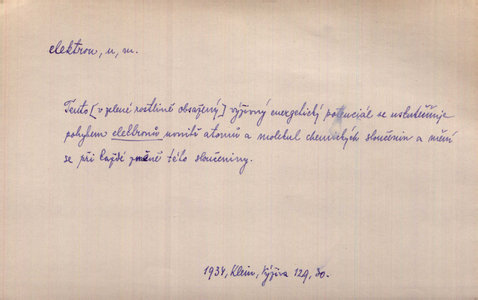 elektron, u, m.
Tento [v zelené rostlině obsažený] výživný energetický potenciál se uskutečňuje
pohybem elektronů uvnitř atomů a molekul chemických sloučenin a mění
se při každé změně této sloučeniny.
1934, Klein, Výživa 129, 80.